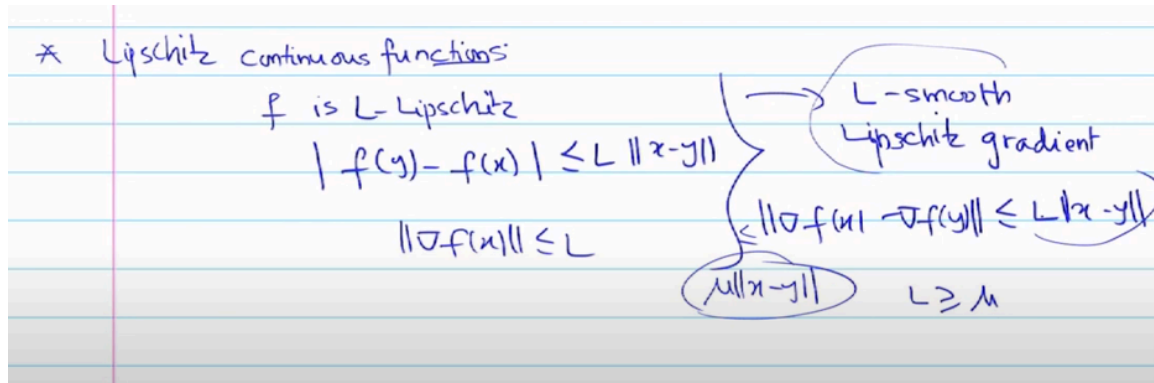 * Lipschitz continuous functions:
f is L-Lipschitz
| f(y) - f(x) | ≤ L ||x-y||
||∇f(x)|| ≤ L
→ L-smooth
Lipschitz gradient
≤ ||∇f(x) - ∇f(y)|| ≤ L||x-y||
μ||x-y||
L ≥ μ